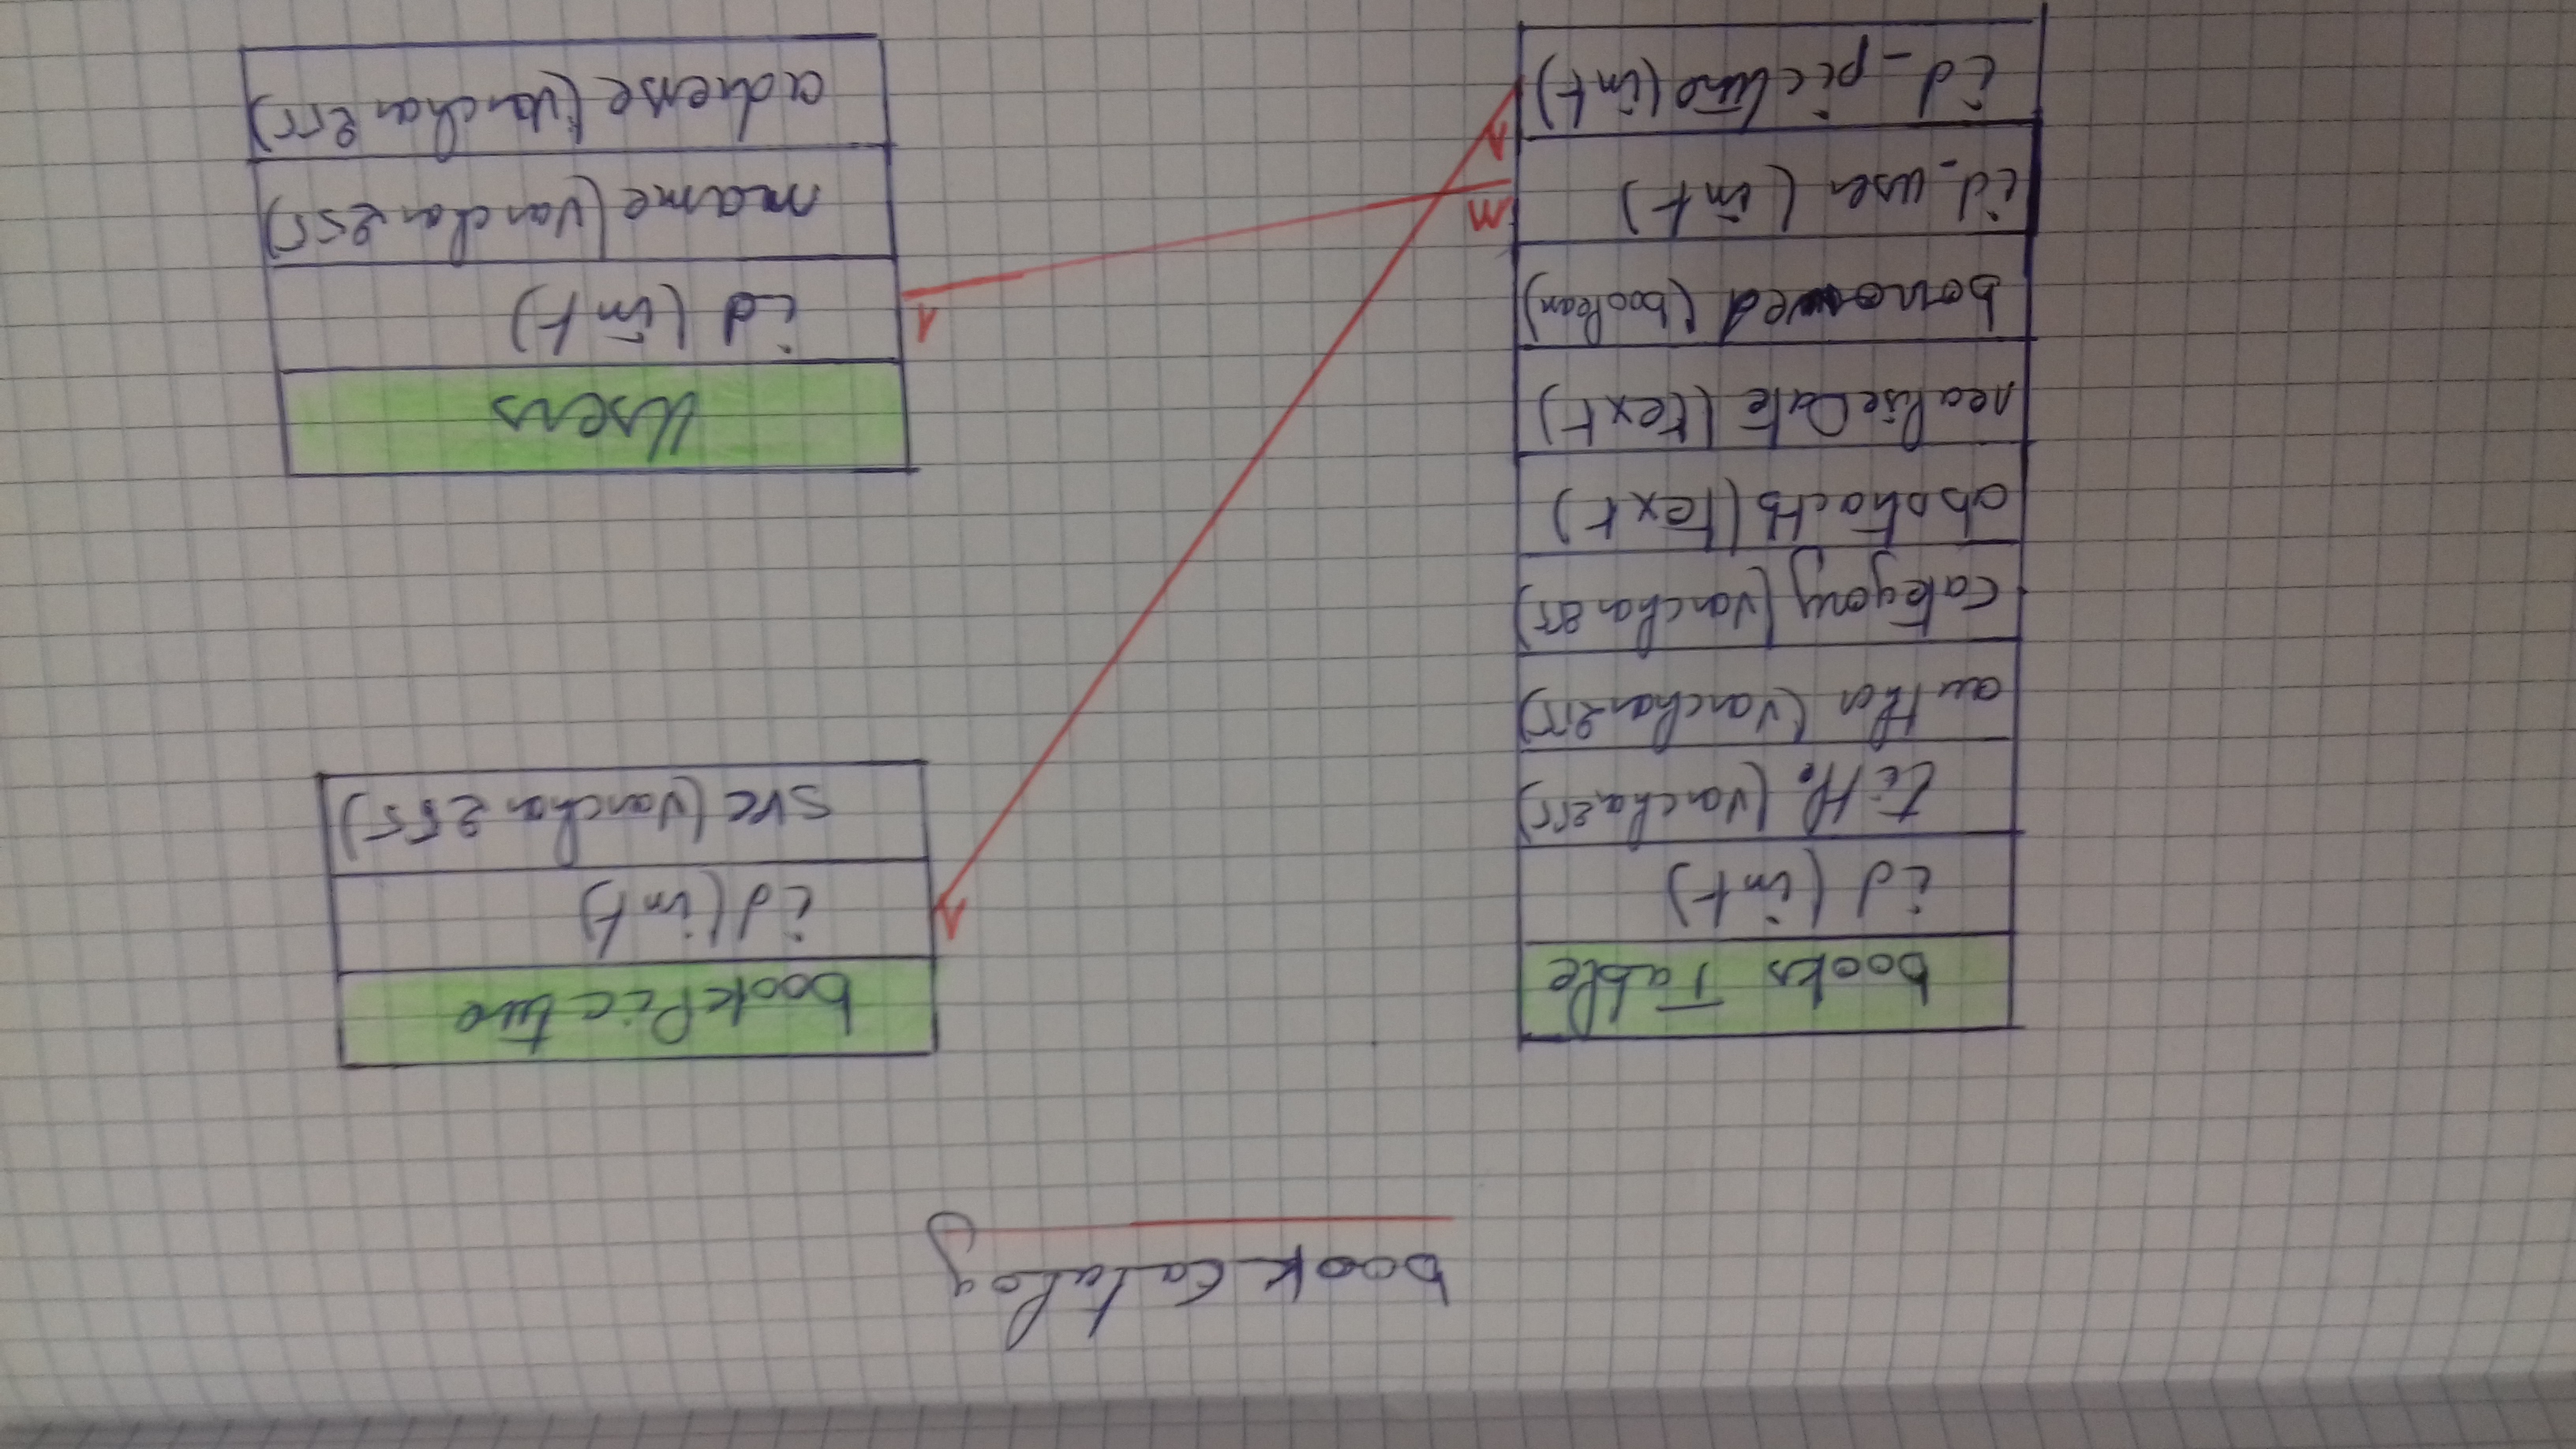 bookCatalog
books Table
id (int)
title (varchar 255)
author (varchar 255)
category (varchar 255)
abstracts (text)
realiseDate (text)
borrowed (boolean)
id_user (int)
id_picture (int)
bookPicture
id (int)
src (varchar 255)
Users
id (int)
name (varchar 255)
adresse (varchar 255)
1
1
n
1